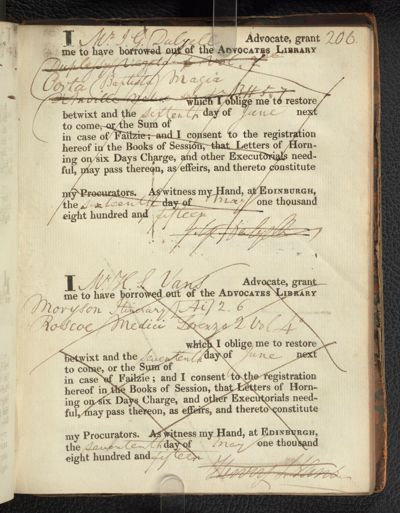 206.
I Mr J G Dalyell Advocate, grant
me to have borrowed out of the ADVOCATES LIBRARY
Porta (Baptista) Magia
which I oblige me to restore
betwixt and the sixteenth day of June next
to come, or the Sum of
in case of Failzie; and I consent to the registration
hereof in the Books of Session, that Letters of Horn-
ing on six Days Charge, and other Executorials need-
ful, may pass thereon, as effeirs, and thereto constitute
my Procurators. As witness my Hand, at EDINBURGH,
the sixteenth day of May one thousand
eight hundred and fifteen
I Mr H. L Vans Advocate, grant
me to have borrowed out of the ADVOCATES LIBRARY
Moryson Itinerary 2. 6
Roscoe Medici Lorenzo 2 Vol 4
which I oblige me to restore
betwixt and the seventeenth day of June next
to come, or the Sum of
in case of Failzie; and I consent to the registration
hereof in the Books of Session, that Letters of Horn-
ing on six Days Charge, and other Executorials need-
ful, may pass thereon, as effeirs, and thereto constitute
my Procurators. As witness my Hand, at EDINBURGH,
the seventeenth day of May one thousand
eight hundred and fifteen